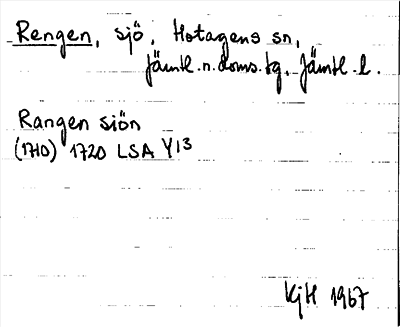 Rengen, sjö, Hotagens sn,
Jämtl. n. doms. tg, Jämtl. l.
Rangen siön
(1710) 1720 LSA Y13
KjH 1967